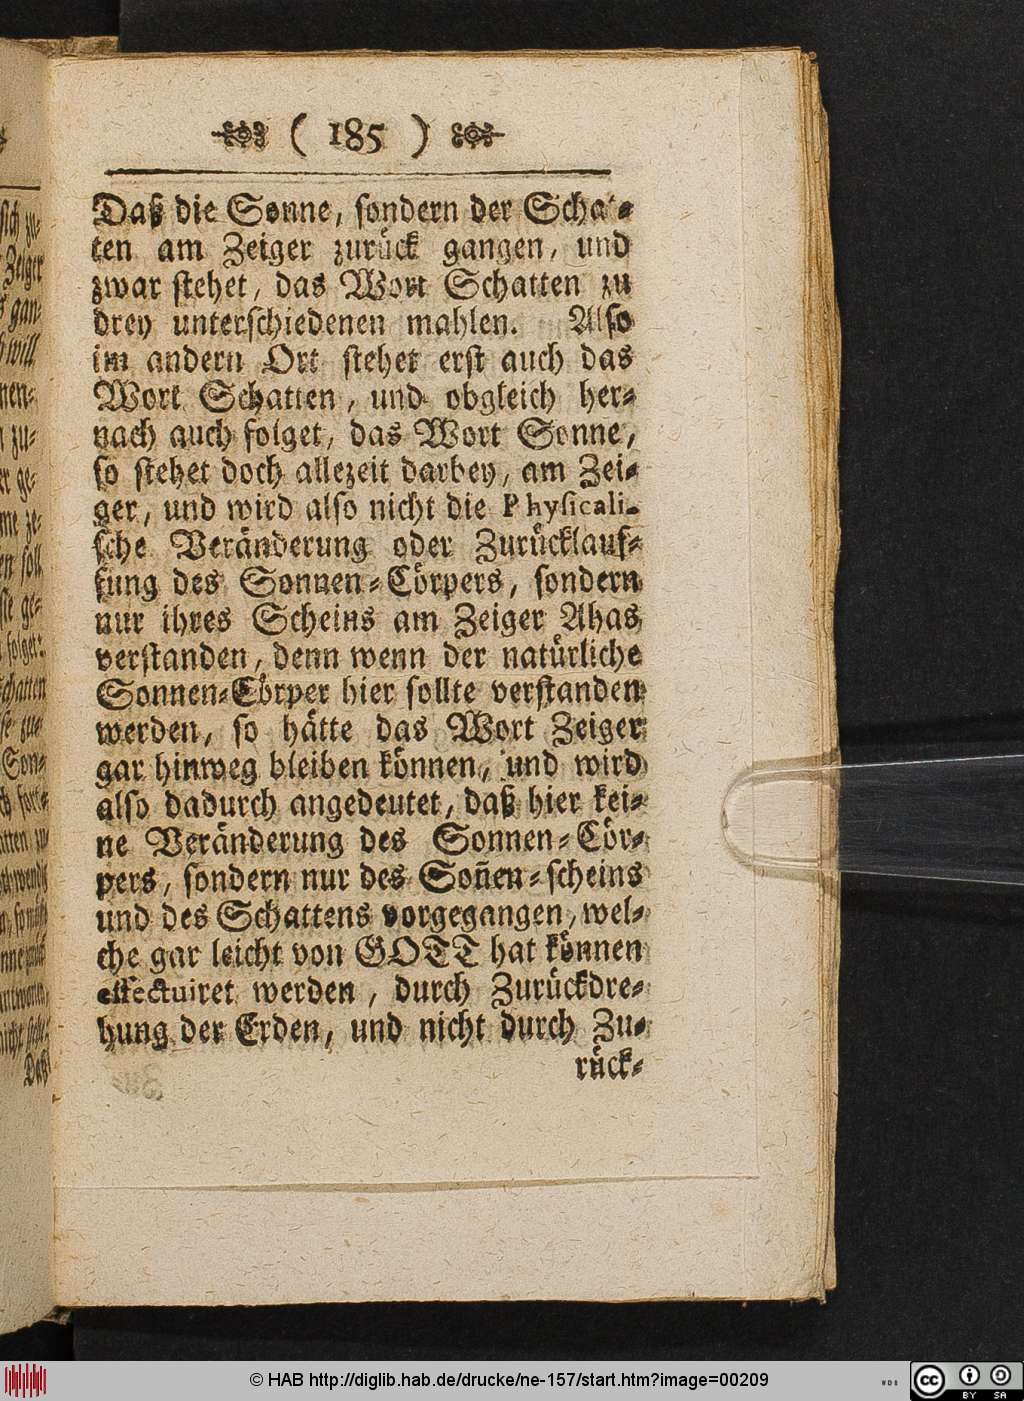 ( 185 )
Daß die Sonne, sondern der Schat-
ten am Zeiger zurück gangen, und
zwar stehet, das Wort Schatten zu
drey unterschiedenen mahlen. Also
im andern Ort stehet erst auch das
Wort Schatten, und obgleich her-
nach auch folget, das Wort Sonne,
so stehet doch allezeit darbey, am Zei-
ger, und wird also nicht die Physicali-
sche Veränderung oder Zurücklauf-
fung des Sonnen-Cörpers, sondern
nur ihres Scheins am Zeiger Ahas
verstanden, denn wenn der natürliche
Sonnen-Cörper hier sollte verstanden
werden, so hätte das Wort Zeiger
gar hinweg bleiben können, und wird
also dadurch angedeutet, daß hier kei-
ne Veränderung des Sonnen-Cör-
pers, sondern nur des Soñen-scheins
und des Schattens vorgegangen, wel-
che gar leicht von GOTT hat können
effectuiret werden, durch Zurückdre-
hung der Erden, und nicht durch Zu-
rück-
© HAB http://diglib.hab.de/drucke/ne-157/start.htm?image=00209
WDB
cc BY SA